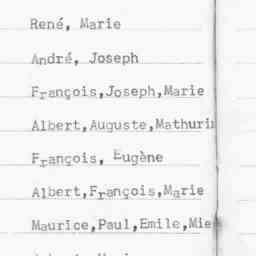 René, Marie
André, Joseph
François,Joseph,Marie
Albert,Auguste,Mathurin
François, Eugène
Albert,François,Marie
Maurice,Paul,Emile,